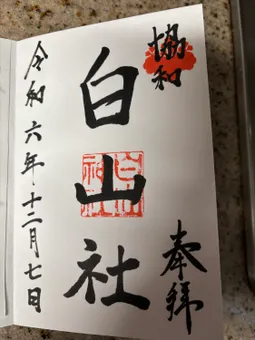 協和
奉拝
白山社
令和六年十二月七日